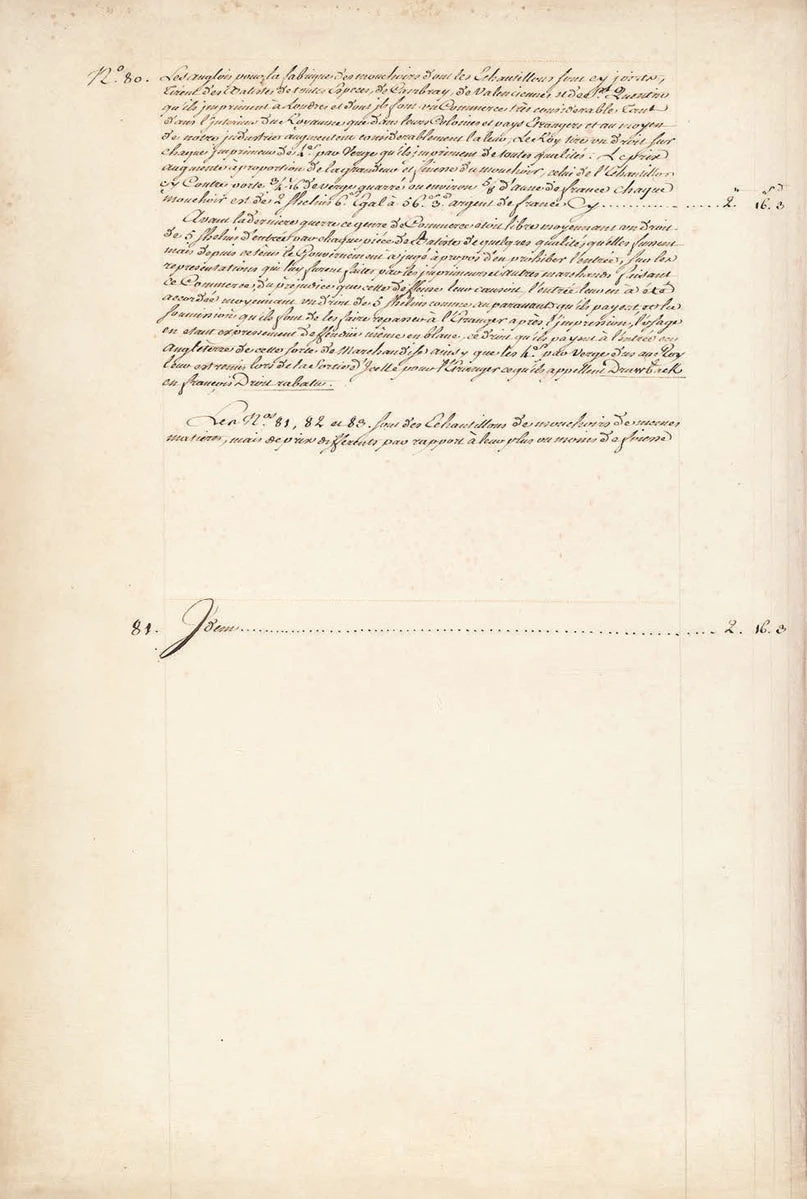 N.º 80. Les anglois pour la fabrique des mouchoirs dont les Echantillons sont cy joints,
tirent des Batistes de toutes Especes, de Cambray, de Valenciennes, et de St. Quentin
qu'ils impriment à Londres et dont ils font un Commerce très considerable, tant
dans l'interieur du Royaume que dans leurs Colonies et pays Etrangers et au moyen
de notre industrie augmentent considerablement la leur, Le Roy tire un droit sur
chaque imprimeur de 4.d par Verge qu'ils impriment de toutes qualités. Le prix
augmente à proportion de la grandeur et finesse du mouchoir, celui de l'Echantillon
cy Contre porte 3/4 1/16 de verge quarré ou environ d'aune de france Chaque
mouchoir est de 2 Shelins 6.d Egal à 56.s 3.d argent de france Cy .......... 2. 16. 3
Avant la derniere guerre ce genre de Commerce etoit libre moyennant un droit
de 5 Shelins d'entrée par chaque piéce de Batiste de quelques qualité, qu'elles fussent
mais depuis ce tems le Gouvernement a jugé à propos d'en prohiber l'entrée, sur les
représentations qui luy furent faites par ils imprimeurs et autres marchands faisant
ce Commerce, du prejudice que cette deffense leur causoit l'entrée leur en a été
accordée moyennant un droit de 5 Shelins comme auparavant qu'ils payent, et la
Soumission qu'ils font de les faire repasser à l'Etranger après l'impression, l'usage
en etant expressement deffendüe même en blanc, ce droit qu'ils payent à l'entrée en
Angleterre de cette sorte de Marchandise ainsy que les 4.d par Verge dus au Roy
leur est remis lors de la Sortie d'Icelle pour l'Etranger ce qu'ils appellent Drawback
en françois Droit rabatu.
Les N.os 81, 82 et 83. sont des Echantillons de mouchoirs de memes
matieres, mais de prix differents par rapport à leur plus ou moins de finesse
81. Idem .......... 2. 16. 3